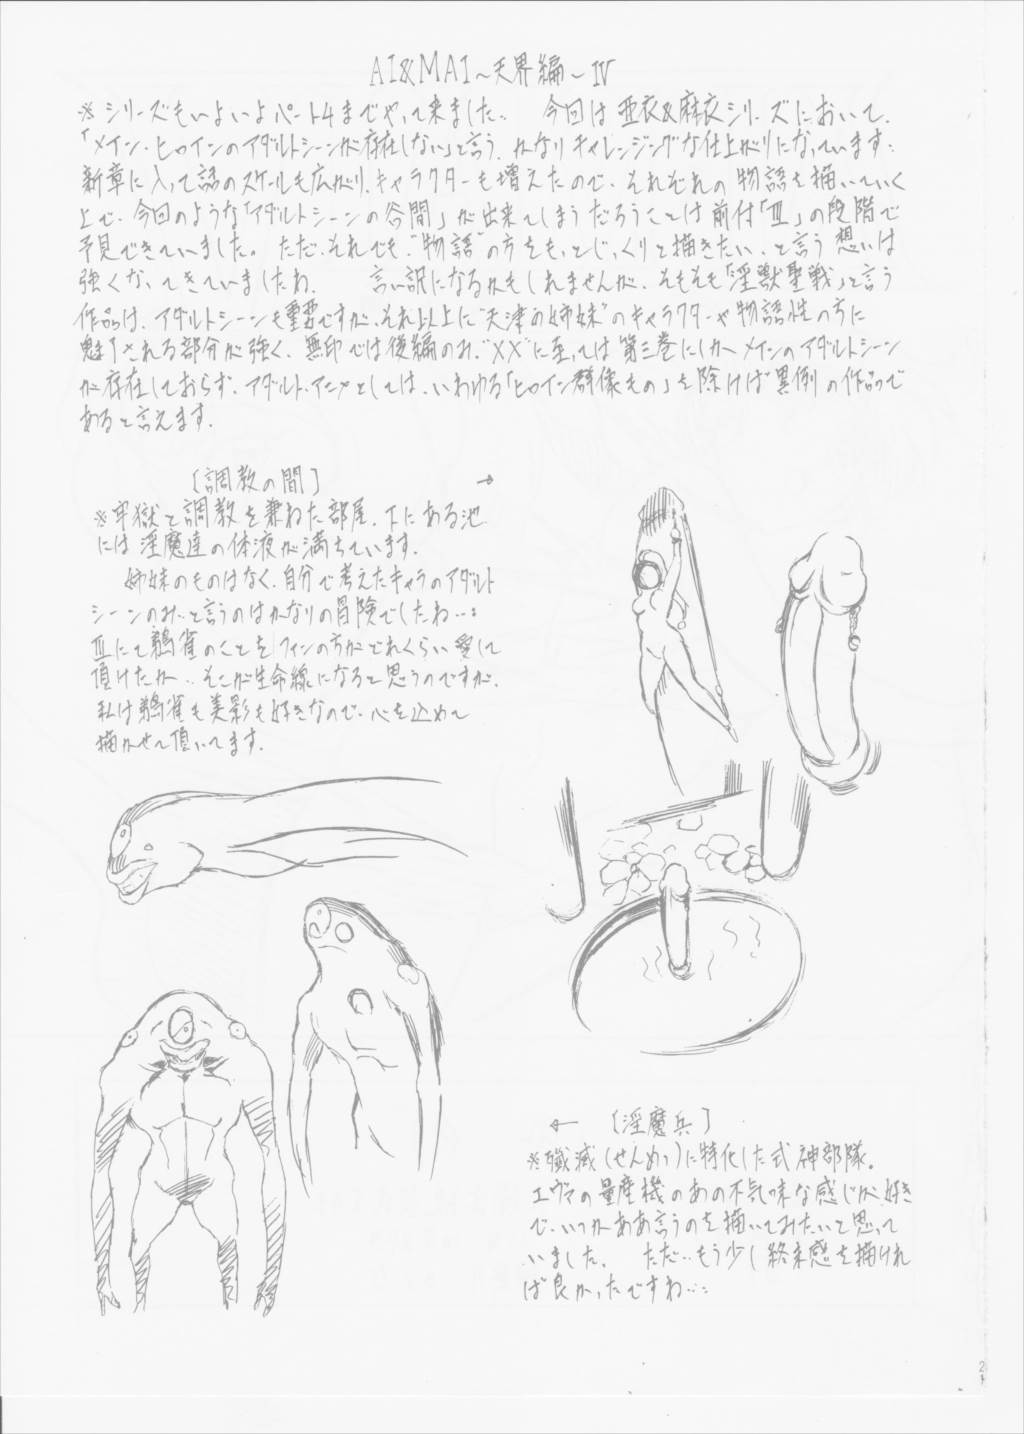 AI&MAI～天界編～Ⅳ
※シリーズもいよいよパート4までやって来ました‥ 今回は亜衣&麻衣シリーズにおいて、
「メイン・ヒロインのアダルトシーンが存在しない」と言う、かなりチャレンジングな仕上がりになっています‥
新章に入って話のスケールも広がり、キャラクターも増えたので、それぞれの物語を描いていく
上で、今回のような「アダルトシーンの谷間」が出来てしまうだろうことは前作「Ⅲ」の段階で
予見できていました。 ただ、それでも“物語”の方をもっとじっくりと描きたい、と言う想いは
強くなってきていましたね。 言い訳になるかもしれませんが、そもそも「淫獣聖戦」と言う
作品は、アダルトシーンも重要ですが、それ以上に“天津の姉妹”のキャラクターや物語性の方に
魅了される部分が強く、無印では後編のみ、“XX”に至っては第三巻にしかメインのアダルトシーン
が存在しておらず、アダルト・アニメとしては、いわゆる「ヒロイン群像もの」を除けば異例の作品で
あると言えます。
[調教の間] →
※牢獄と調教を兼ねた部屋。下にある池
には淫魔達の体液が満ちています。
姉妹のものはなく、自分で考えたキャラのアダルト
シーンのみ‥と言うのはかなりの冒険でしたね…‥
Ⅲにて鵺雀のことをファンの方がどれくらい愛して
頂けたか‥そこが生命線になると思うのですが、
私は鵺雀も美影も好きなので、心を込めて
描かせて頂いてます。
← [淫魔兵]
※殲滅(せんめつ)に特化した式神部隊。
エヴァの量産機のあの不気味な感じが好き
で、いつかああ言うのを描いてみたいと思って
いました。 ただ‥もう少し終末感を描けれ
ば良かったですね…‥